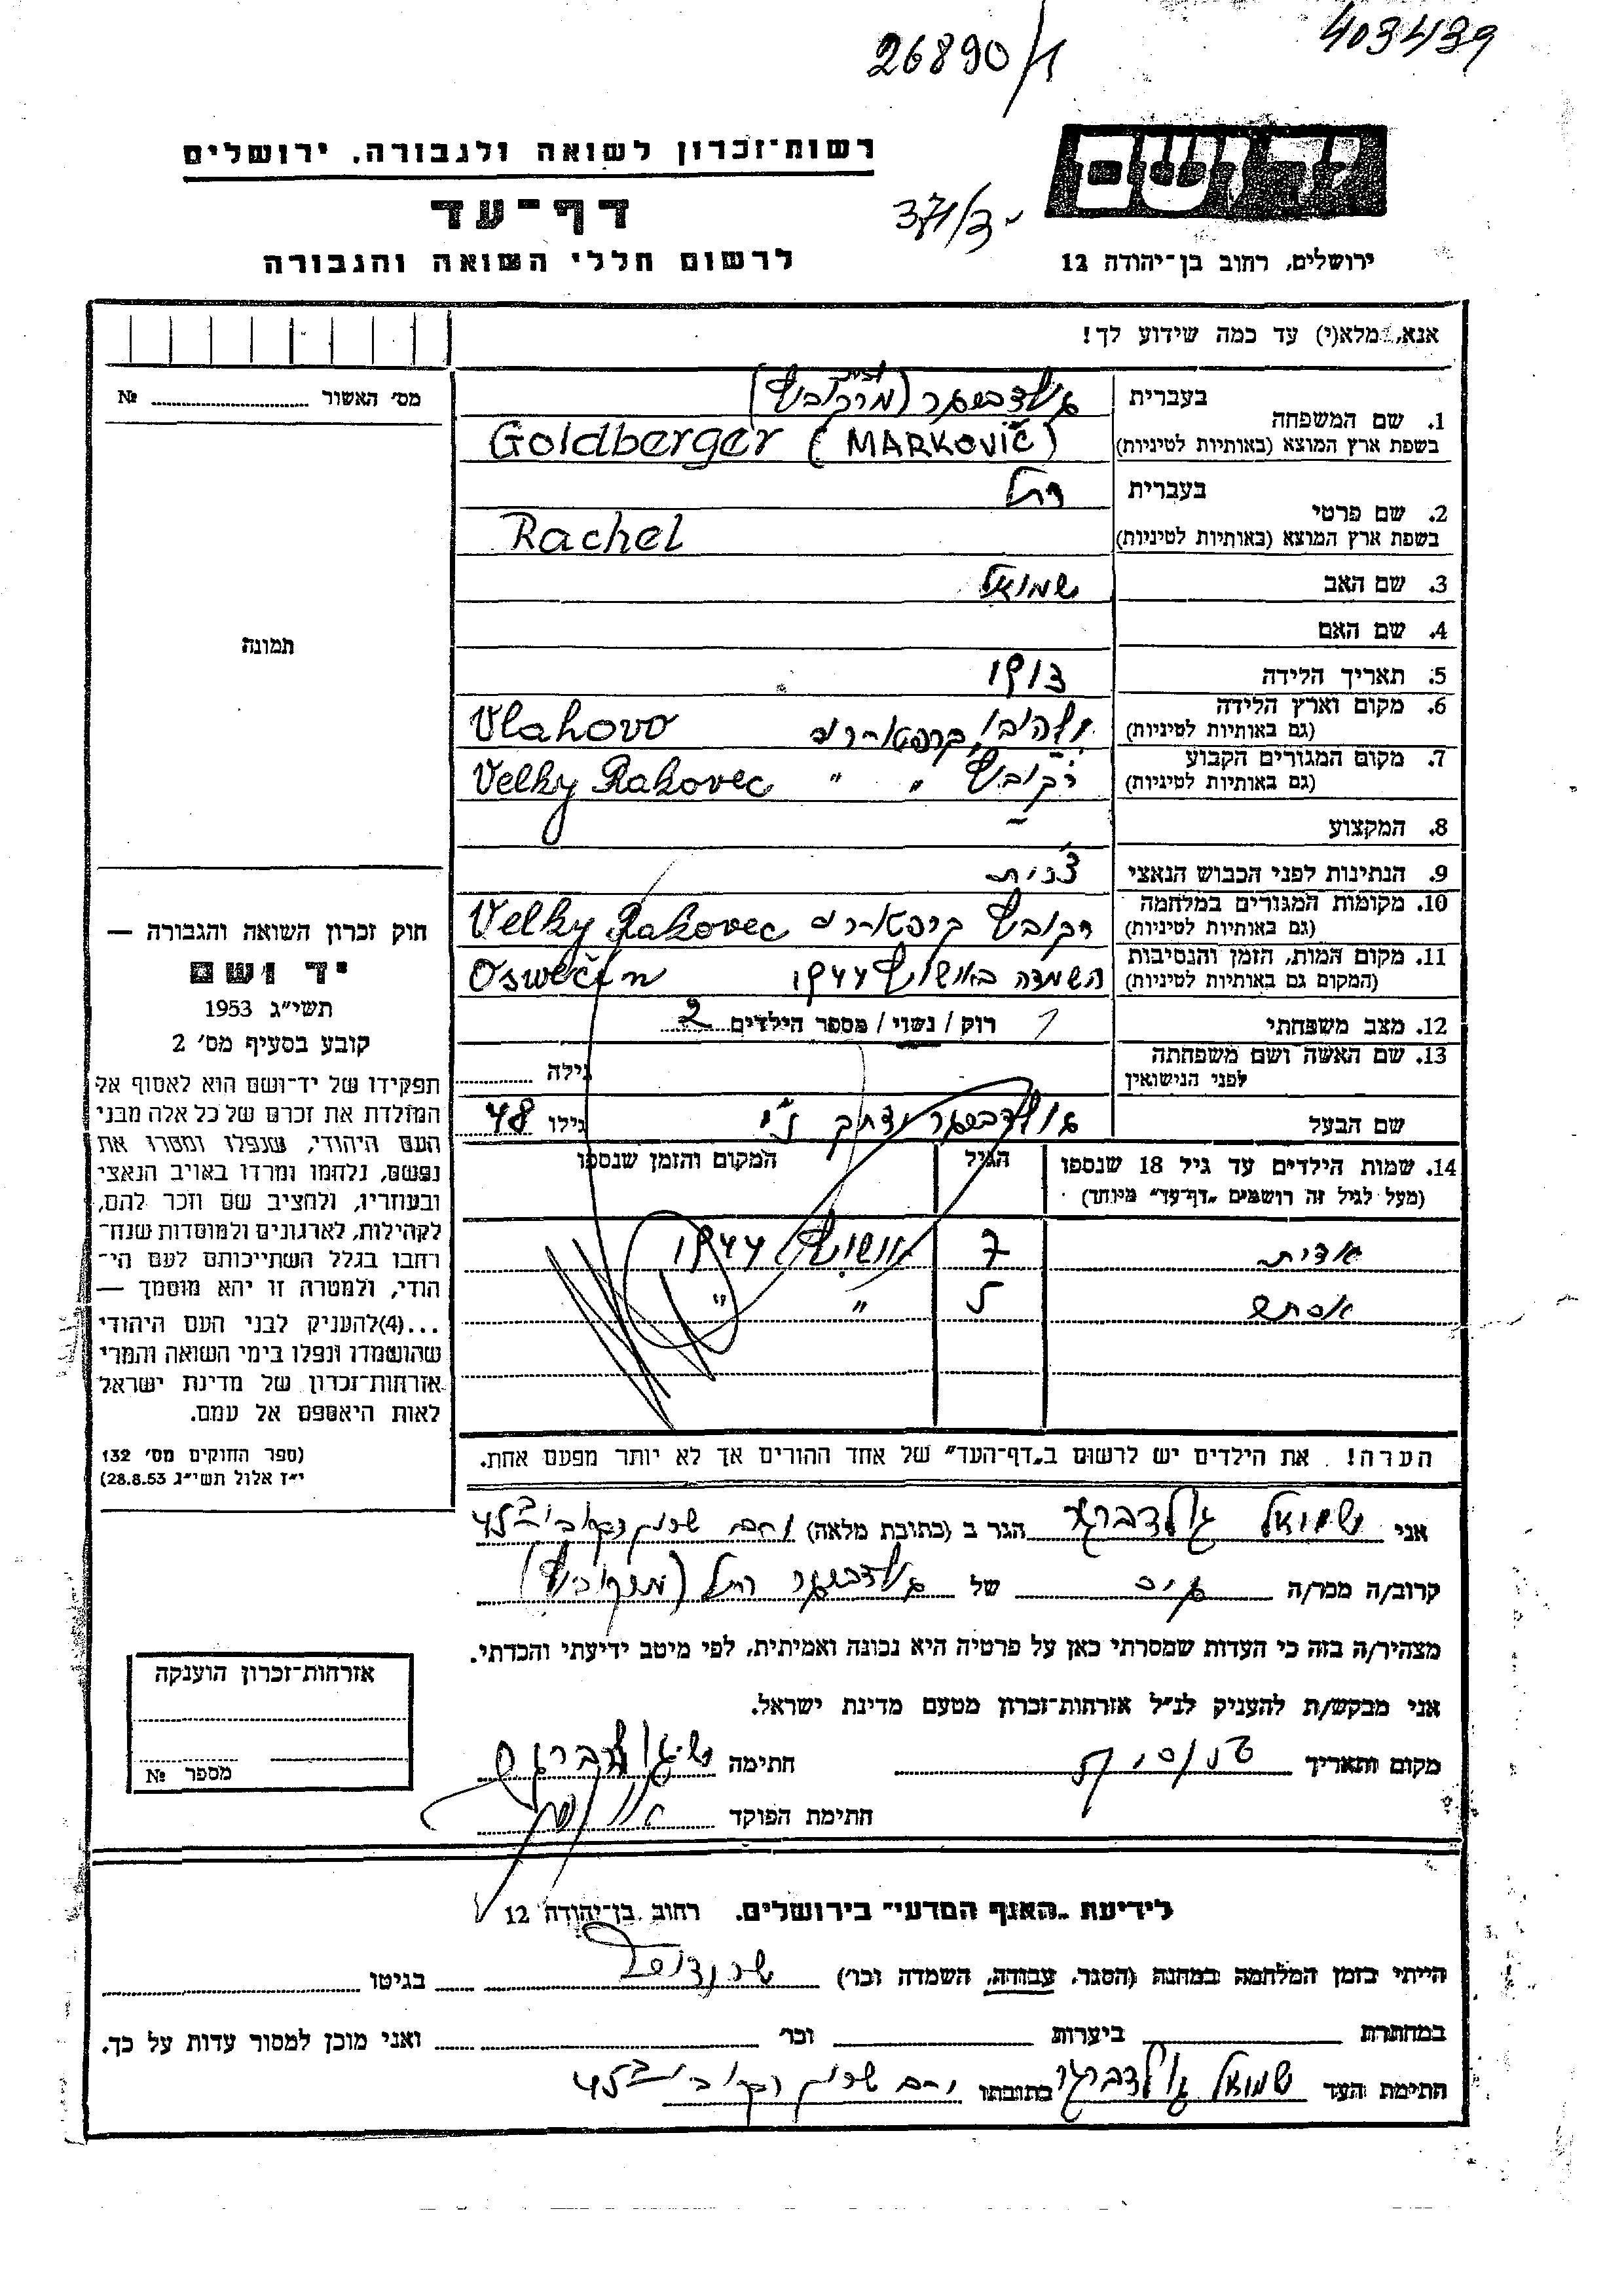 26890/1
403439
רשות־זכרון לשואה ולגבורה, ירושלים
דף־עד
לרשום חללי השואה והגבורה
371/3
יד ושם
ירושלים, רחוב בן־יהודה 12
אנא, מלא(י) עד כמה שידוע לך!
מס׳ האשור № 
1. שם המשפחה
בעברית
גולדבערגער (מרקוביץ)
בשפת ארץ המוצא (באותיות לטיניות)
Goldberger (MARKOVIČ)
2. שם פרטי
בעברית
רחל
בשפת ארץ המוצא (באותיות לטיניות)
Rachel
3. שם האב שמואל
4. שם האם
5. תאריך הלידה 1913
6. מקום וארץ הלידה
(גם באותיות לטיניות)
Vlahovo
7. מקום המגורים הקבוע
(גם באותיות לטיניות)
רקוביץ " " Velky Rakovec
8. המקצוע –
9. הנתינות לפני הכבוש הנאצי
10. מקומות המגורים במלחמה
(גם באותיות לטיניות)
רקוביץ Velky Rakovec
11. מקום המות, הזמן והנסיבות
(המקום גם באותיות לטיניות)
השמדה באושוויץ 1944 Oswečin
12. מצב משפחתי רוק / נשוי / מספר הילדים 2
13. שם האשה ושם משפחתה
לפני הנישואין
גילה
שם הבעל גולדבערגער יצחק נ״י גילו 48
14. שמות הילדים עד גיל 18 שנספו
(מעל לגיל זה רושמים „דף־עד״ מיוחד)
הגיל
המקום והזמן שנספו
אדית 7 אושוויץ 1944
אסתר 5 " "
הערה! את הילדים יש לרשום ב„דף־העד״ של אחד ההורים אך לא יותר מפעם אחת.
תמונה
חוק זכרון השואה והגבורה —
יד ושם
תשי״ג 1953
קובע בסעיף מס׳ 2
תפקידו של יד־ושם הוא לאסוף אל
המולדת את זכרם של כל אלה מבני
העם היהודי, שנפלו ומסרו את
נפשם, נלחמו ומרדו באויב הנאצי
ובעוזריו, ולהציב שם וזכר להם,
לקהילות, לארגונים ולמוסדות שנח־
רבו בגלל השתייכותם לעם הי־
הודי, ולמטרה זו יהא מוסמך —
...(4)להעניק לבני העם היהודי
שהושמדו ונפלו בימי השואה והמרי
אזרחות־זכרון של מדינת ישראל
לאות היאספם אל עמם.
(ספר החוקים מס׳ 132
י״ז אלול תשי״ג 28.8.53)
אני שמואל גולדברגר הגר ב (כתובת מלאה)
קרוב/ה מכר/ה גיס של גולדבערגער רחל (מרקוביץ)
מצהיר/ה בזה כי העדות שמסרתי כאן על פרטיה היא נכונה ואמיתית, לפי מיטב ידיעתי והכרתי.
אני מבקש/ת להעניק לנ״ל אזרחות־זכרון מטעם מדינת ישראל.
מקום ותאריך חתימה
חתימת הפוקד
אזרחות־זכרון הוענקה
מספר №
לידיעת „האגף המדעי״ בירושלים. רחוב בן־יהודה 12
הייתי בזמן המלחמה במחנה (הסגר, עבודה, השמדה וכר׳) בגיטו
במחתרת ביערות וכר׳ ואני מוכן למסור עדות על כך.
חתימת העד שמואל גולדברגר כתובתו